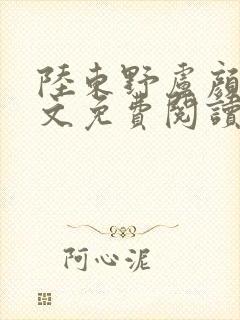 陸東野盧顏
文免費閱讀
阿心泥